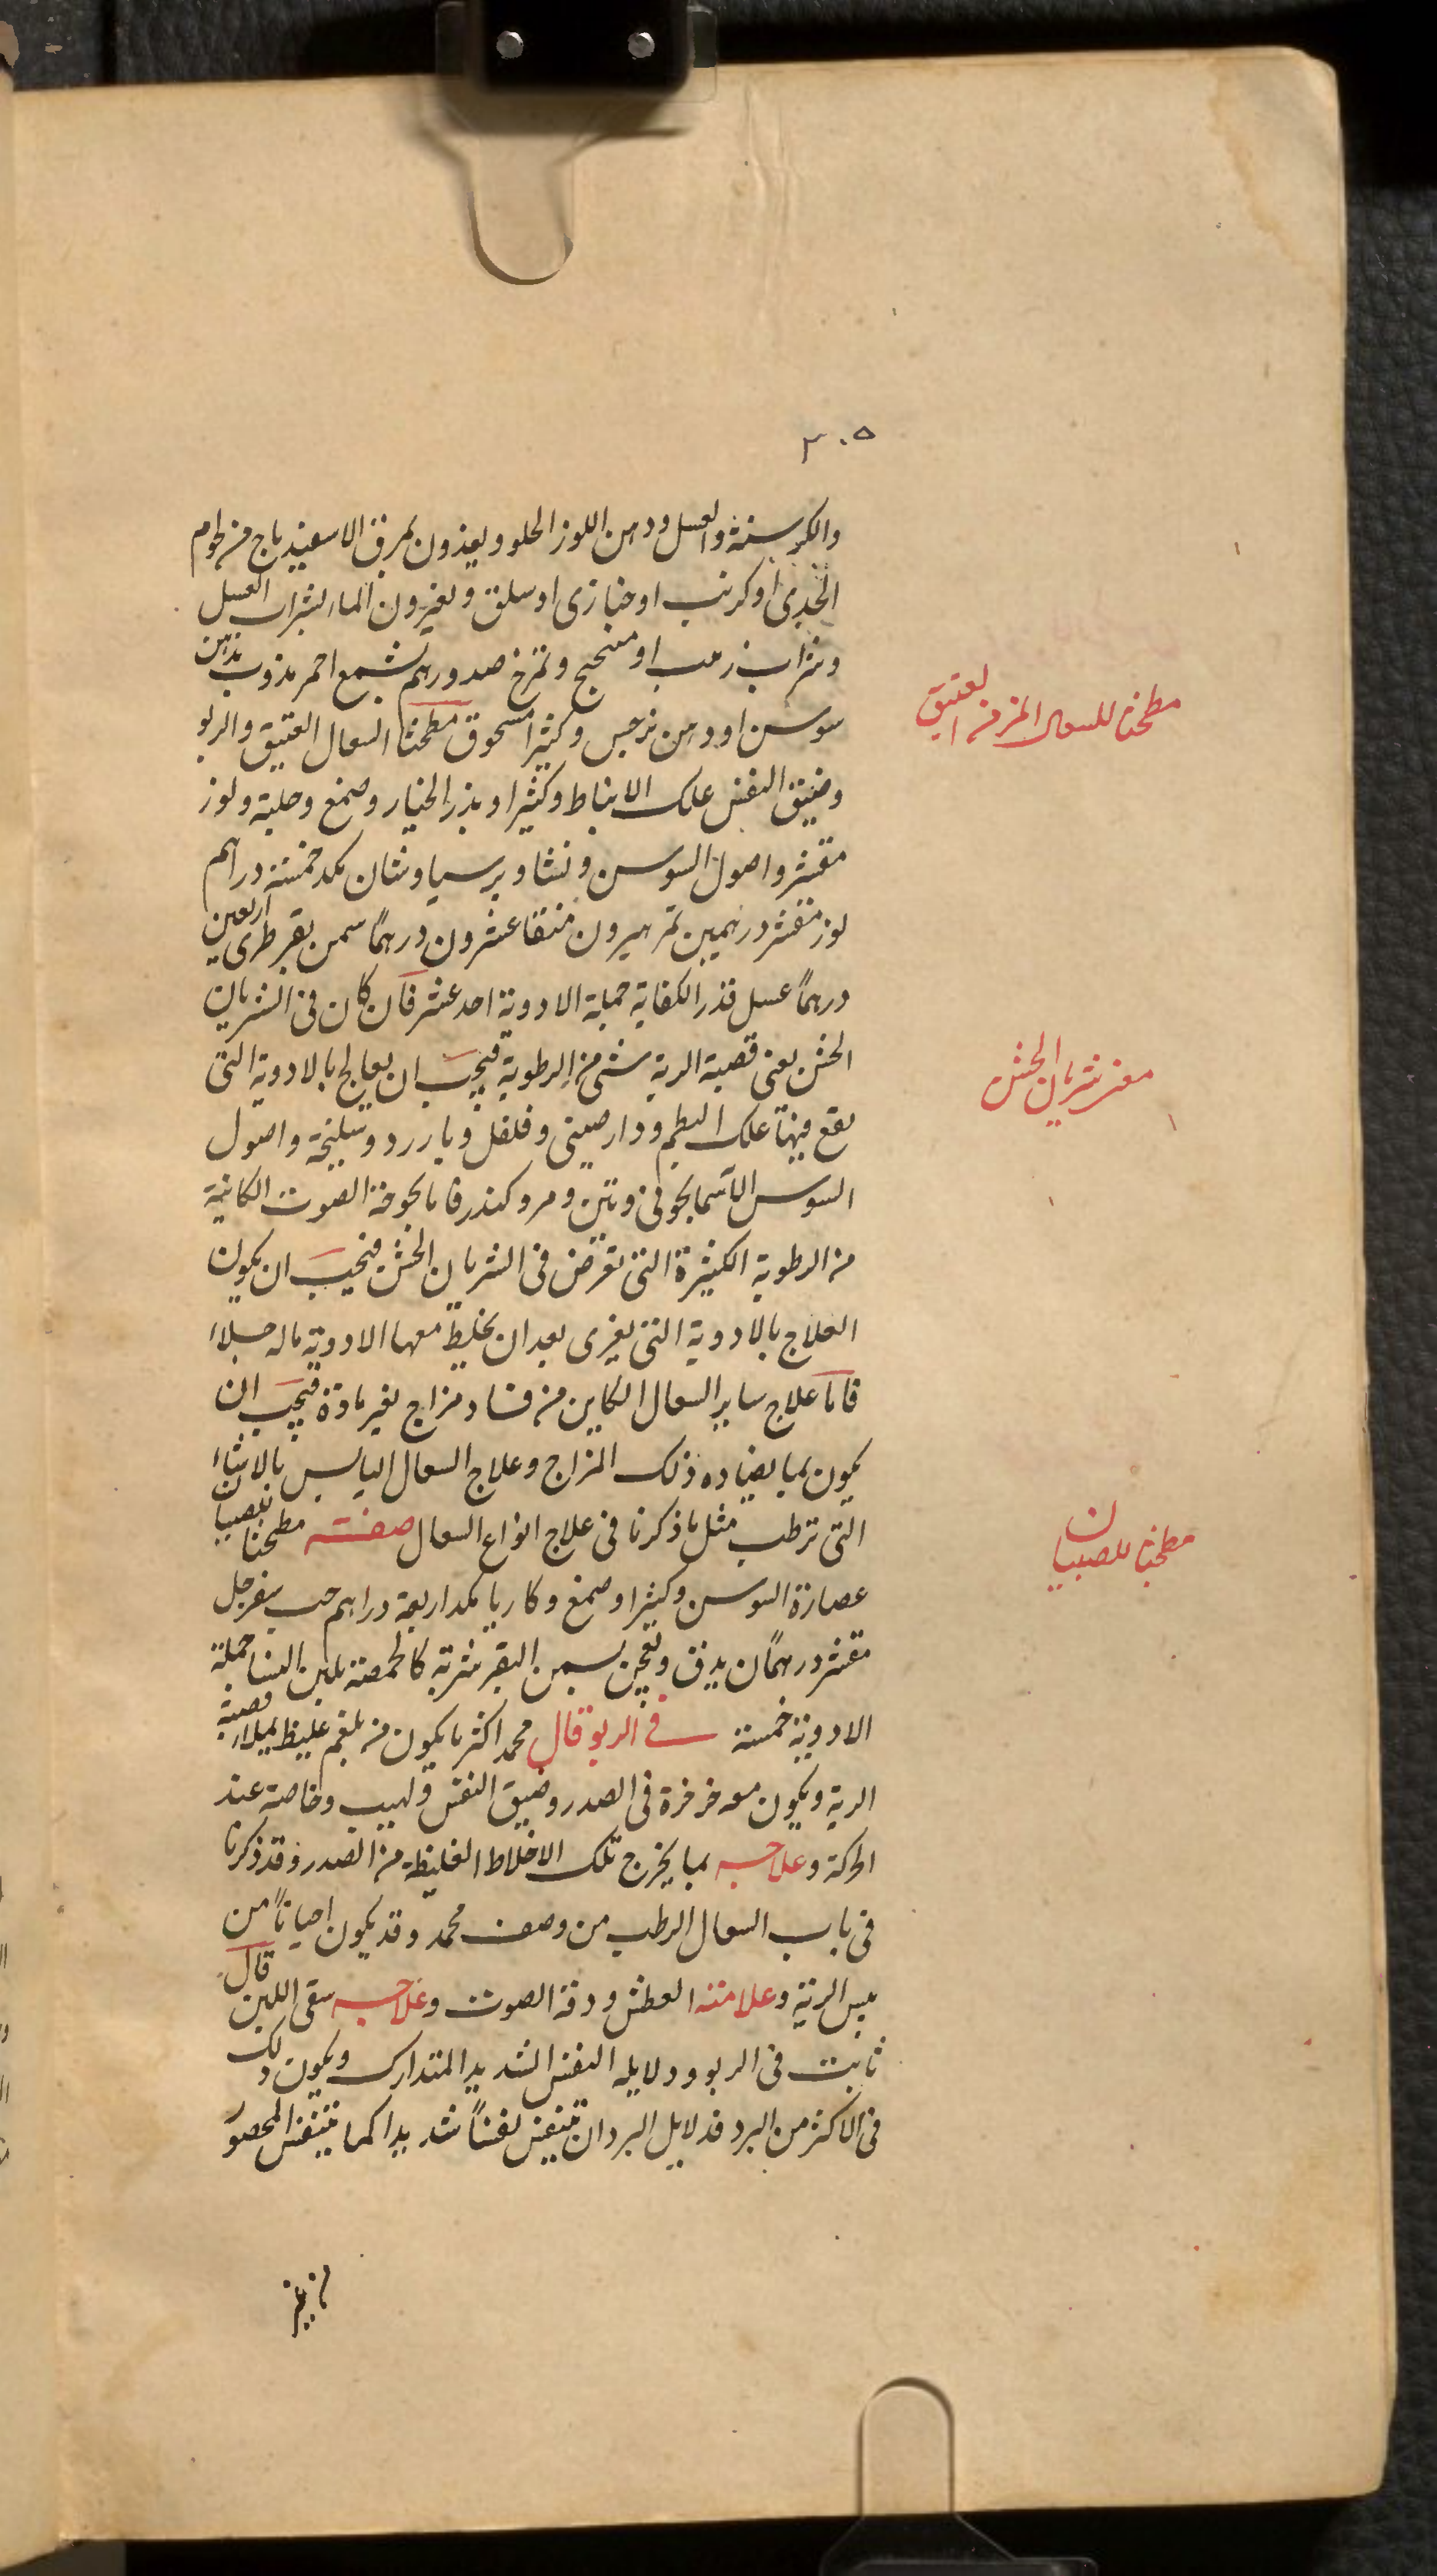 ٣٠٥
والكرسنة والعسل ودهن اللوز الحلو ويغذون بمرق الاسفيدباج من لحوم
الجدى او كرنب او خبازى او سلق ويغيرون الماء بشراب العسل
وشراب زهب او منحتج وتمرخ صدورهم بشمع احمر مذوب بدهن
سوسن او دهن نرجس وكثيرا مسحوق مطحنا السعال العتيق والربو
وضيق النفس علك الانباط وكثيرا وبذر الخيار وصمغ وحلبة ولوز
مقشر واصول السوسن ونشا وبرسياوشان مكد خمسة دراهم
لوز مقشر درهمين تمر هيرون منقا عشرون درهمًا سمن بقر طرى اربعين
درهمًا عسل قدر الكفاية جملة الادوية احد عشر فان كان فى الشريان
الخشن يعنى قصبة الرية شى من الرطوبة فيجب ان يعالج بالادوية التى
يقع فيها علك البطم ودارصينى وفلفل وبارزد وسليخة واصول
السوس الاسمانجونى وتين ومر وكندر فاما بحوحة الصوت الكائنة
من الرطوبة الكثيرة التى تعرض فى الشريان الخشن فيجب ان يكون
العلاج بالادوية التى يغرى بعد ان يخلط معها الادوية ماله جلاء
فاما علاج ساير السعال الكاين من فساد مزاج بغير مادة فيجب ان
يكون بما يضاده ذلك المزاج وعلاج السعال اليابس بالاشياء
التى ترطب مثل ما ذكرنا فى علاج انواع السعال صفة مطحنا للصبيان
عصارة السوسن وكثيرا وصمغ وكاربا مكد اربعة دراهم حب سفرجل
مقشر درهمان يدق ويعجن بسمن البقر شربة كالحمصة بلبن النسا جملة
الادوية خمسة فى الربو قال محمد اكثر ما يكون من بلغم غليظ يملاء قصبة
الرية ويكون معه خرخرة فى الصدر وضيق النفس ولهيب وخاصة عند
الحركة وعلاجه بما يخرج تلك الاخلاط الغليظة من الصدر وقد ذكرنا
فى باب السعال الرطب من وصف محمد وقد يكون احيانًا من
يبس الرية وعلامته العطش ودقة الصوت وعلاجه سقى اللبن قال
ثابت فى الربو ودلايله النفس الشديد المتدارك ويكون ذلك
فى الاكثر من البرد فدلايل البرد ان يتنفس نفسًا شديدا كما يتنفس المحصور
مطحنا للسعال المزمن العتيق
معنى شريان الخشن
مطحنا للصبيان